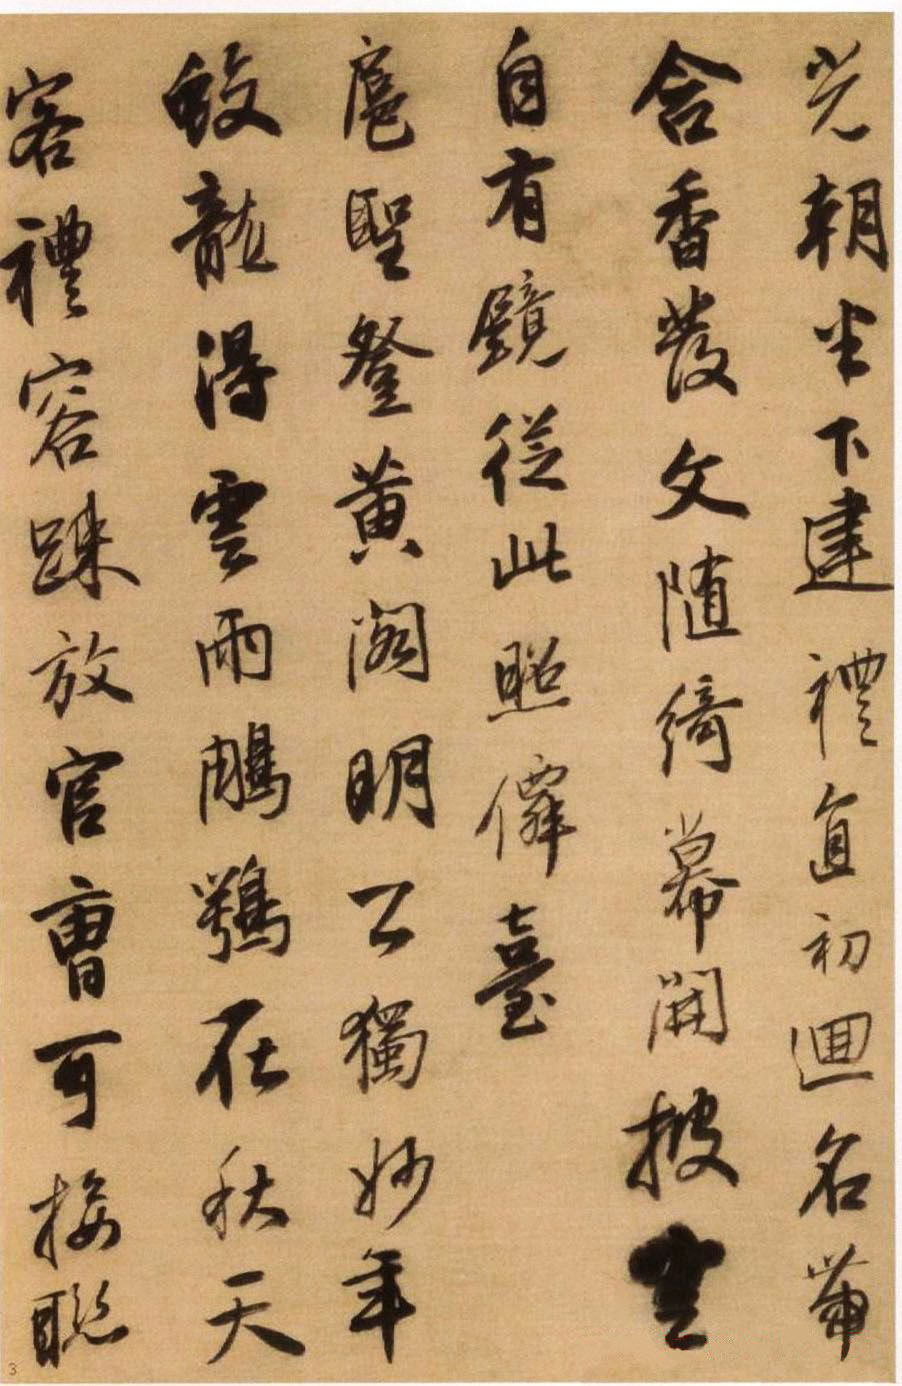 光朝半下建禮直初迴名帶
含香發文随綺幕開披雲
自有鏡從此照僊臺
扈聖登黃閣明公獨妙年
蛟龍得雲雨鵰鶚在秋天
客禮容踈放官曹可接聯
3